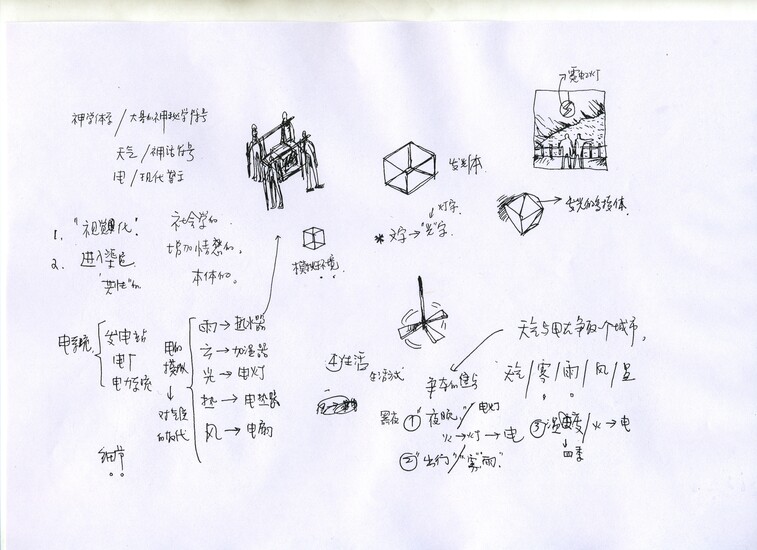 神学体系/大量的神秘学符号
天气/神话符号
电/现代
霓虹灯
发光体
发光的多棱体.
1. "视觉化".
社会学的
增加情感的,
2. 进入渠道
本体的.
"物性"的
↓灯字
* 文字→"光"字.
模拟环境.
电系统
发电站
电厂
电力系统
电的模拟
↓
对气候的替代
雨→热水器
云→加湿器
光→电灯
热→电热器
风→电扇
细节
天气与电力争夺一个城市,
天气/雾/雨/风/星
④生活
生活方式
争夺的
黑夜①夜晚/电灯
火→灯→电
②出行/"雾""雨".
③温度/火→电
↓
四季